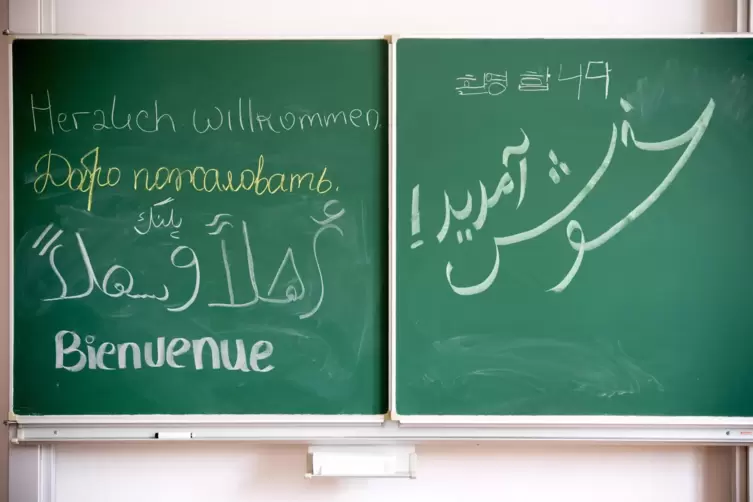 Herzlich willkommen.
Добро пожаловать.
أهلاً وسهلاً
Bienvenue
خوش آمدید!